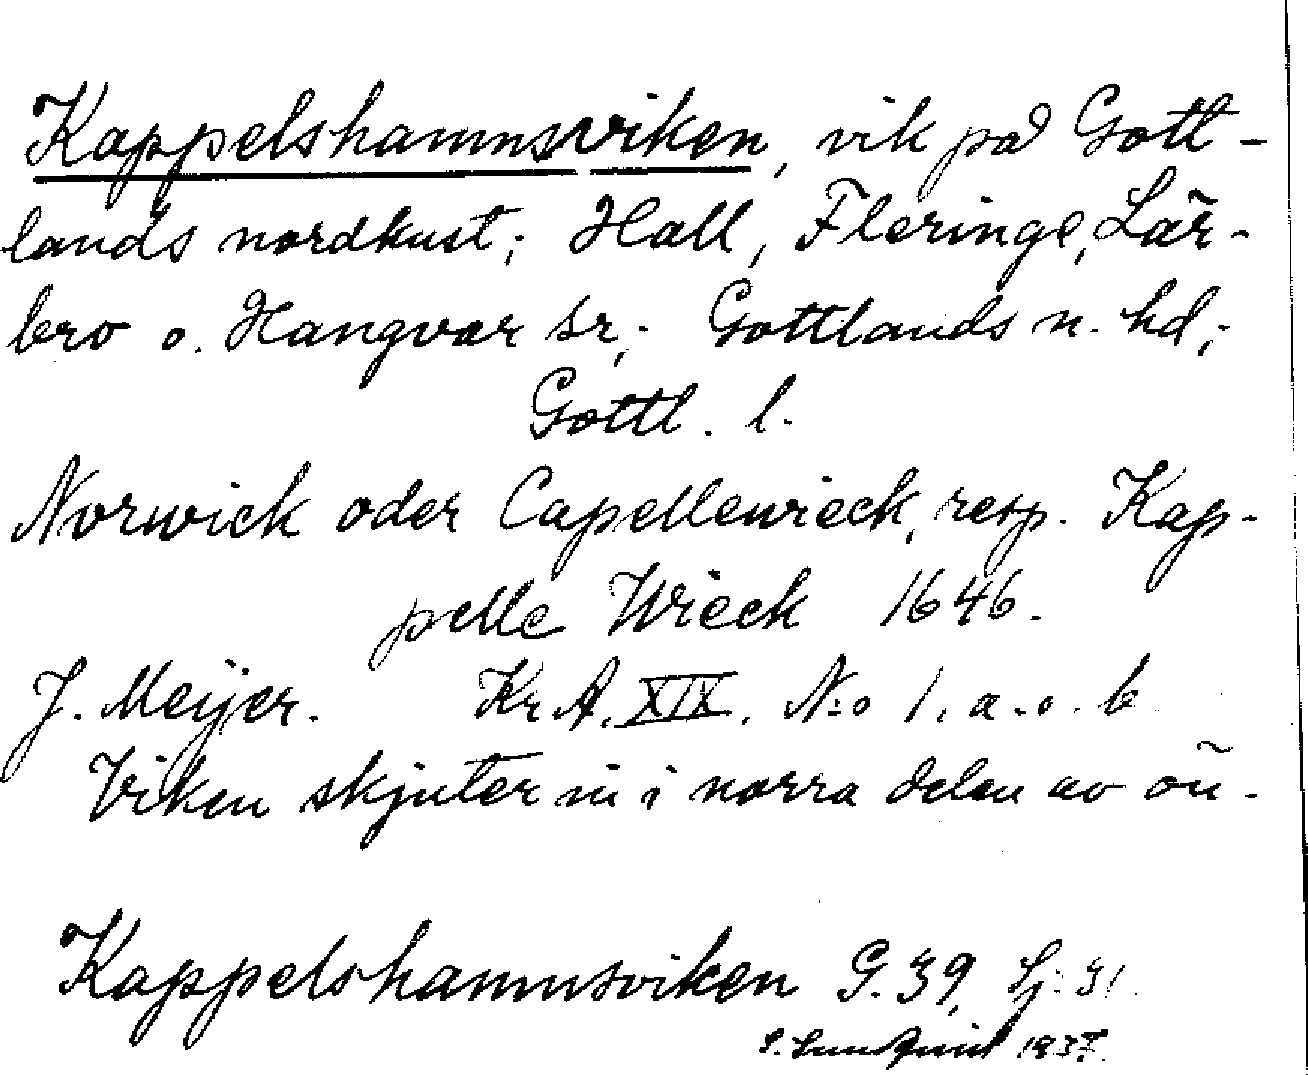 Kappelshamnsviken, vik på Gott-
lands nordkust; Hall, Fleringe, Lär-
bro o. Hangvar sr; Gottlands n. hd;
Gottl. l.
Norwick oder Capellewieck, resp. Kap-
pelle Wieck 1646.
J. Meijer. Kr. A. XIX. N:o 1. a. o. b
Viken skjuter in i norra delen av ön.
Kappelshamnsviken G. 39, Sj. 31.
S. 193